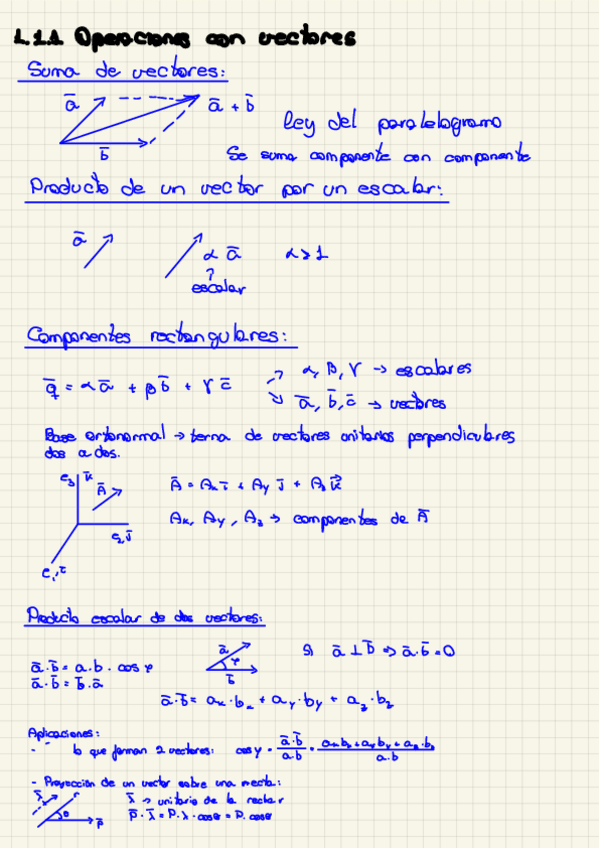 1.1.1 Operaciones con vectores
Suma de vectores:
ā
ā + b̄
b̄
ley del paralelogramo
Se suma componente con componente
Producto de un vector por un escalar:
ā
α ā
α > 1
escalar
Componentes rectangulares:
q̄ = α ā + β b̄ + γ c̄
α, β, γ → escalares
ā, b̄, c̄ → vectores
Base ortonormal → terna de vectores unitarios perpendiculares
dos a dos.
e₃ k̄
Ā
e₂, j̄
e₁, ī
Ā = Aₓ ī + Ay j̄ + A₃ k̄
Aₓ, Ay, A₃ → componentes de Ā
Producto escalar de dos vectores:
ā · b̄ = a · b · cos φ
ā · b̄ = b̄ · ā
ā
φ
b̄
Si ā ⊥ b̄ => ā · b̄ = 0
ā · b̄ = aₓ · bₓ + ay · by + a₃ · b₃
Aplicaciones:
- lo que forman 2 vectores: cos γ = ā·b̄ / a·b = aₓbₓ + ay by + a₃·b₃ / a·b
- Proyección de un vector sobre una recta:
λ̄
r
θ
p̄
λ̄ → unitario de la recta r
p̄ · λ̄ = P · λ · cosθ = P. cosθ